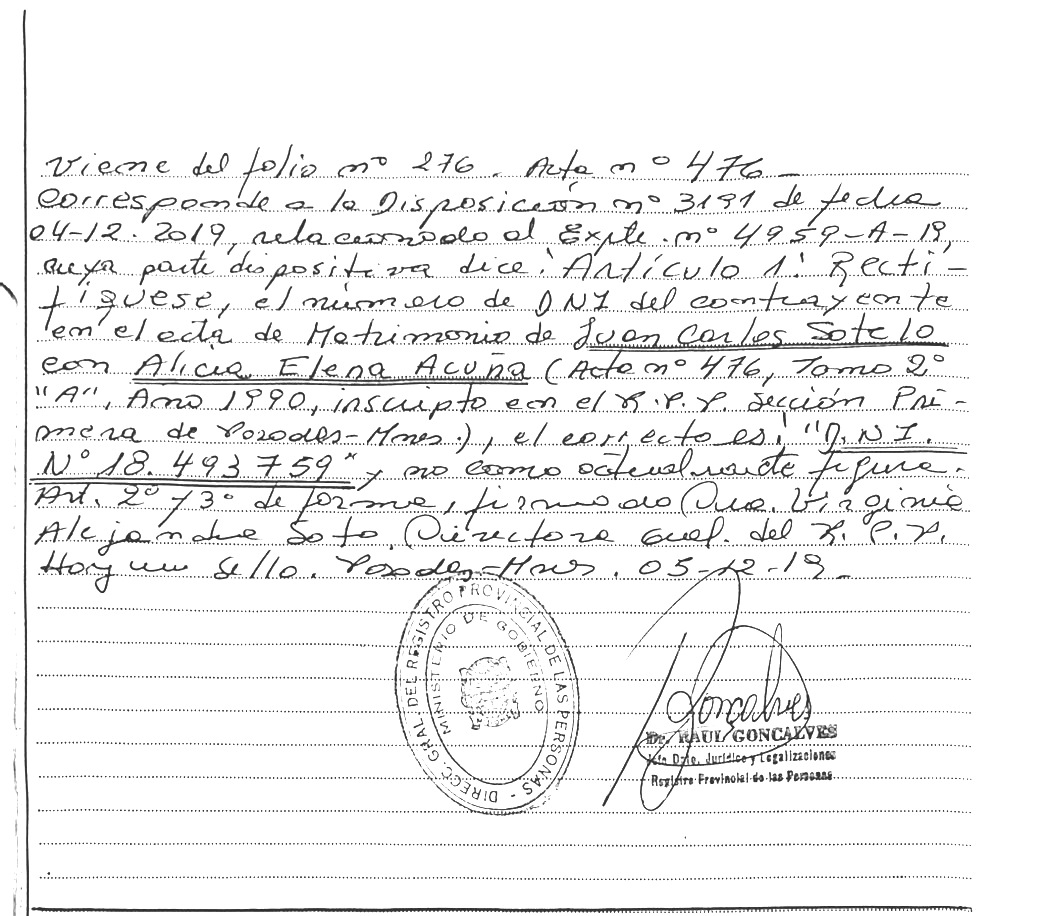 Viene del folio nº 276. Acta nº 476-
Corresponde a la Disposición nº 3191 de fecha
04-12-2019, relacionado al Expte. nº 4959-A-19,
cuya parte dispositiva dice: Artículo 1: Recti-
fíquese, el número de DNI del contrayente
en el acta de Matrimonio de Juan Carlos Sotelo
con Alicia Elena Acuña (Acta nº 476, Tomo 2º
"A", Año 1990, inscripto en el R.P.P. Sección Pri-
mera de Posadas-Mnes.), el correcto es: "D.N.I.
Nº 18.493759" y no como actualmente figura.
Art. 2º y 3º de forma, firmado Dra. Virginia
Alejandra Soto. Directora Gral. del R.P.P.
Hay un sello. Posadas-Mnes. 05-12-19-
DIRECC. GRAL. DEL REGISTRO PROVINCIAL DE LAS PERSONAS -
MINISTERIO DE GOBIERNO
Gonçalves
Dr. RAUL GONCALVES
Jefe Dpto. Jurídico y Legalizaciones
Registro Provincial de las Personas